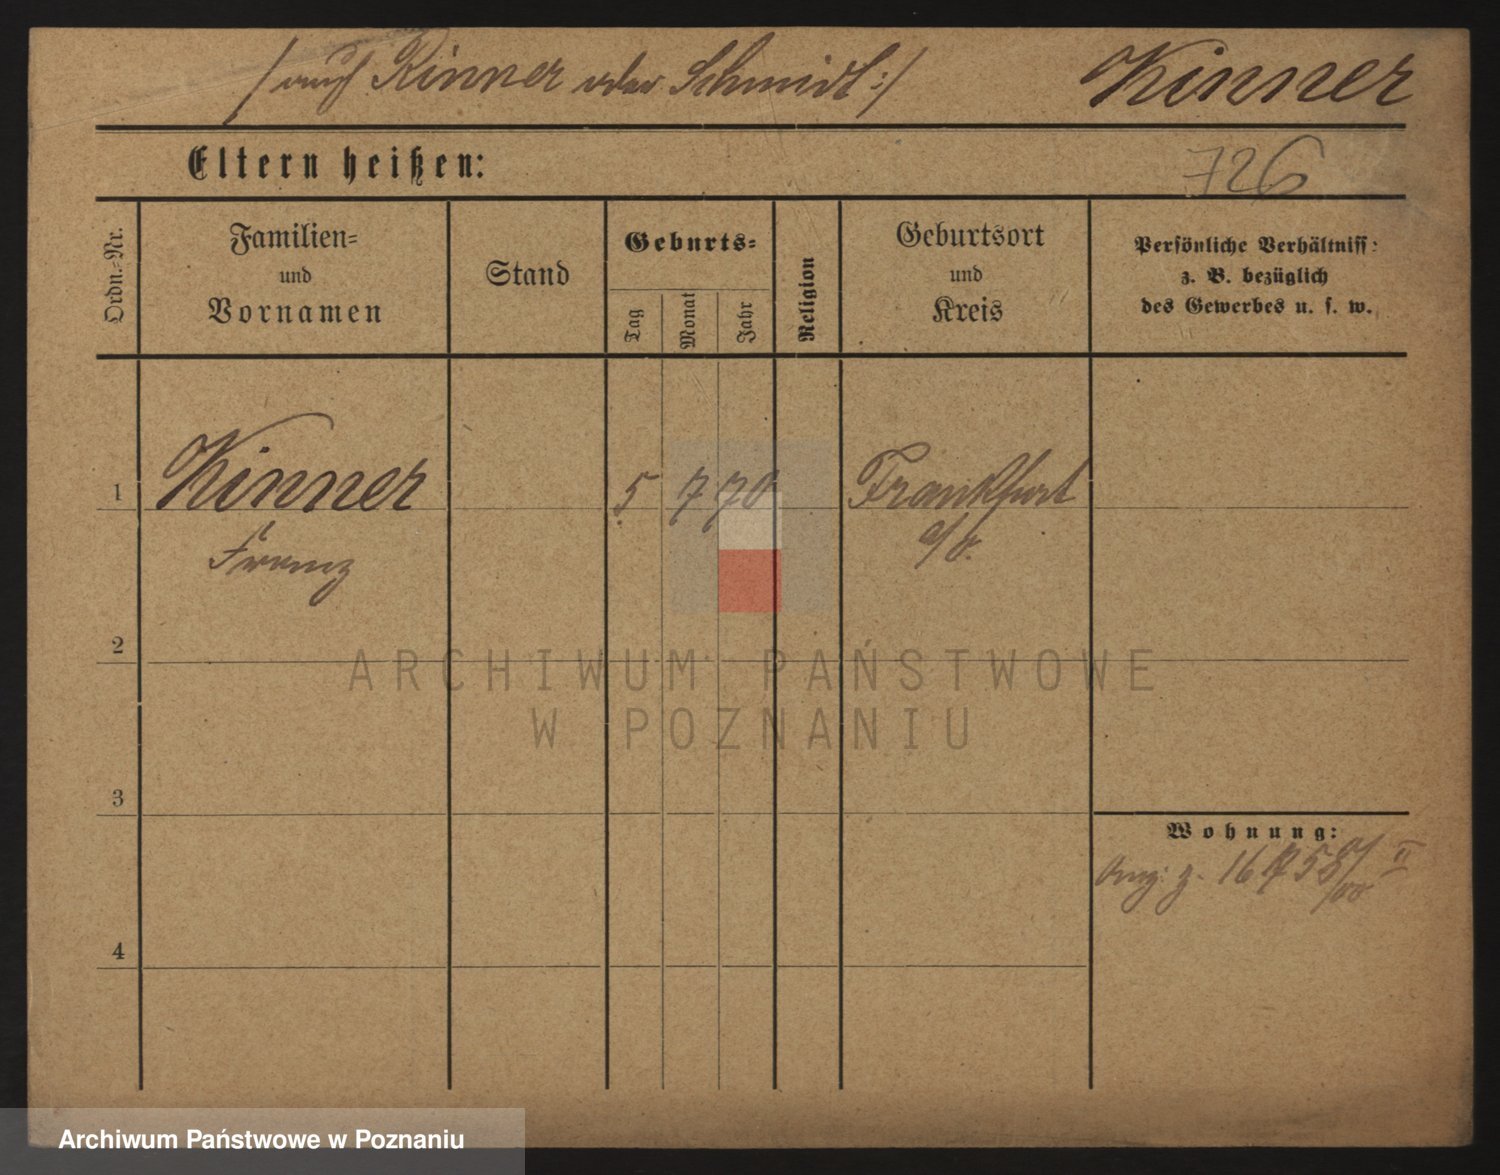 / auch Kinner oder Schmidt :/ Kinner
Eltern heißen:
726
Ordn.-Nr.
Familien-
und
Vornamen
Stand
Geburts-
Tag
Monat
Jahr
Religion
Geburtsort
und
Kreis
Persönliche Verhältniss:
z. B. bezüglich
des Gewerbes u. s. w.
1 Kinner 5 7 70 Frankfurt
Franz a/O.
2
ARCHIWUM PAŃSTWOWE
W POZNANIU
3
Wohnung:
z. 16 58 II
4
Archiwum Państwowe w Poznaniu